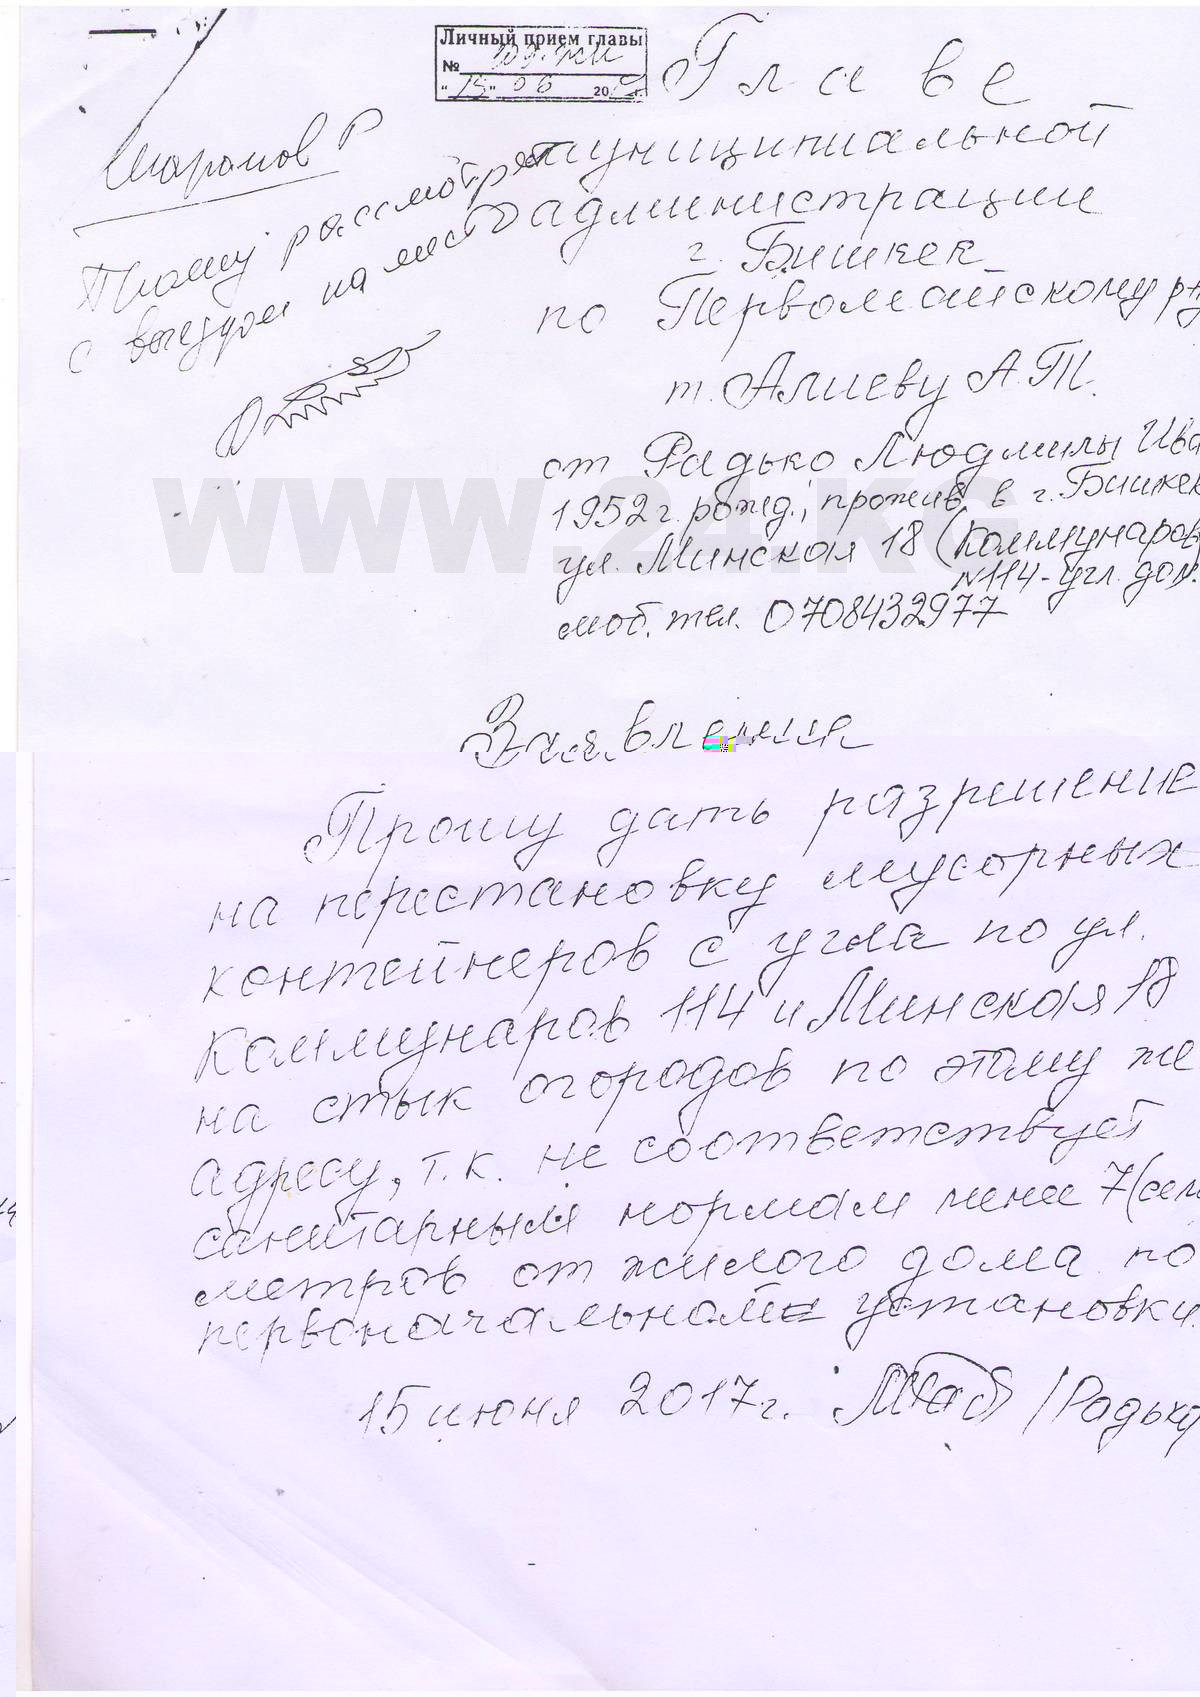 Личный прием главы
№
"15" 06 20 г.
Главе
муниципальной
администрации
г. Бишкек
по Первомайскому р-н
т. Алиеву А.Т.
от Радько Людмилы Ива
1952 г. рожд., прожив. в г. Бишкек
ул. Минская 18 (Коммунаров
N114-угл. дом.
моб. тел. 0708432977
Прошу рассмотреть
с выездом на место
www.24.kg
Заявление
Прошу дать разрешение
на перестановку мусорных
контейнеров с угла по ул.
Коммунаров 114 и Минская 18
на стык огородов по этому же
адресу, т.к. не соответствует
санитарным нормам менее 7 (сем
метров от жилого дома по
первоначальной установки.
15 июня 2017 г. /Радько